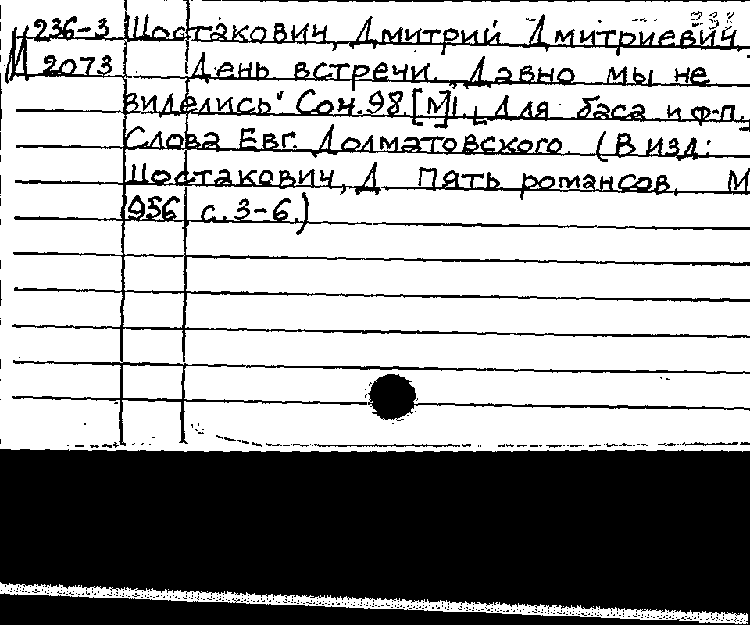 М 236-3 Шостакович, Дмитрий Дмитриевич
2073 День встречи. „Давно мы не
виделись" Соч. 98. [№]1. [Для баса и ф-п.]
Слова Евг. Долматовского. (В изд:
Шостакович, Д. Пять романсов. М
1956, с. 3-6.)